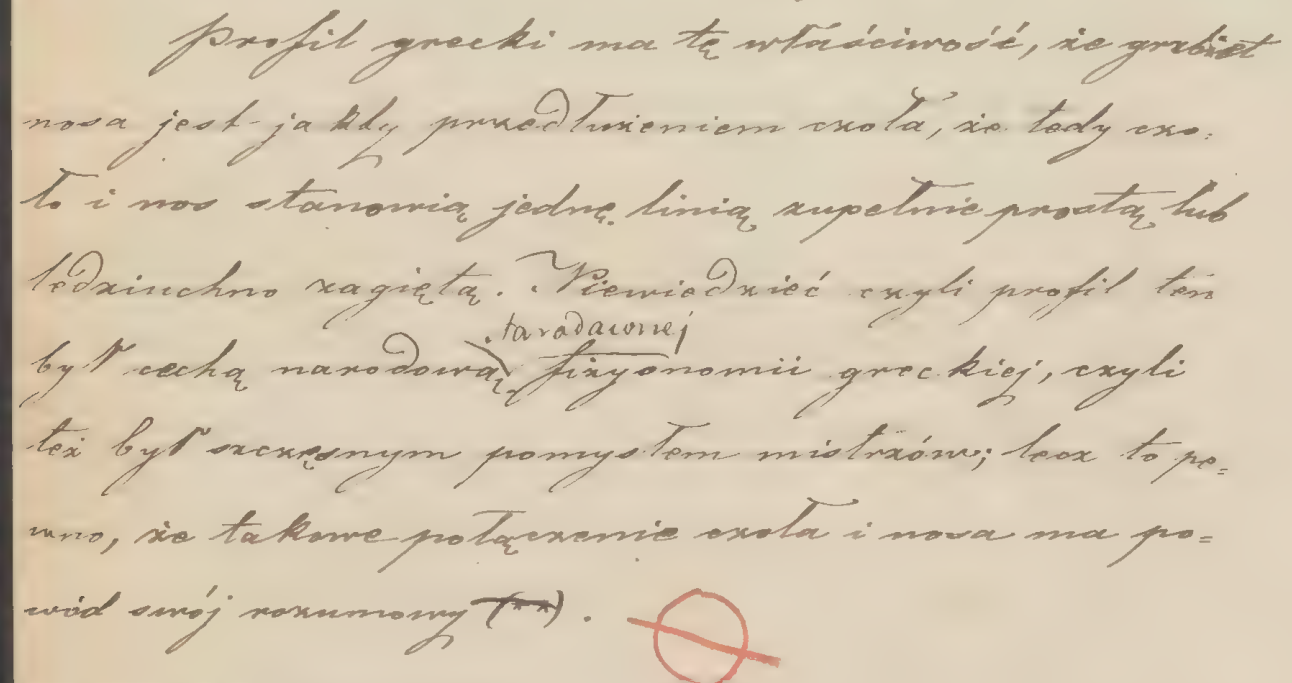 Profil grecki ma tę właściwość, że grzbiet
nosa jest jakby przedłużeniem czoła, że tedy czo-
ło i nos stanowią jednę linią zupełnie prostą lub
ledziuchno zagiętą. Niewiedzieć czyli profil ten
starodawnej
był cechą narodową fizyonomii greckiej, czyli
też był szczęsnym pomysłem mistrzów; lecz to pe=
wno, że takowe połączenie czoła i nosa ma po=
wód swój rozumowy (**).